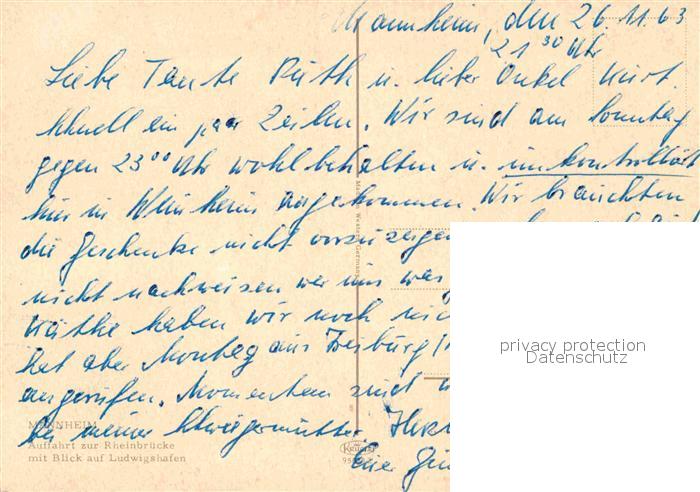 Mannheim, den 26.11.63
21 30 Uhr
Liebe Tante Ruth u. lieber Onkel Kurt.
Schnell ein paar Zeilen. Wir sind am Sonntag
gegen 23 00 Uhr wohlbehalten u. unkontrolliert
hier in Weinheim angekommen. Wir brauchten
die Geschenke nicht vorzuzeigen
nicht nachweisen wer uns was
Käthe haben wir noch
hat aber Montag aus Freiburg
angerufen. Momentan sind
bei meiner Schwiegermutter.
Eure
MANNHEIM
Auffahrt zur Rheinbrücke
mit Blick auf Ludwigshafen
KRÜGER
privacy protection
Datenschutz